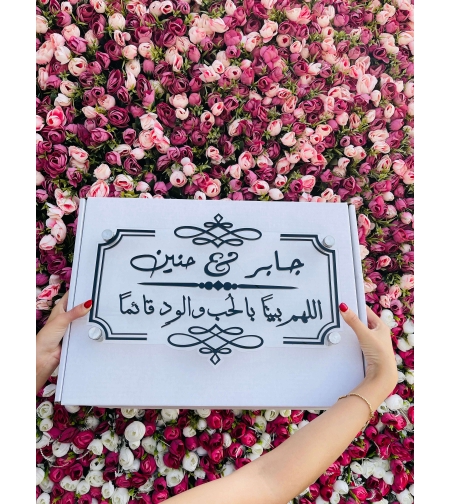 جابر مع حنين
اللهم بيتاً بالحُب والود قائماً